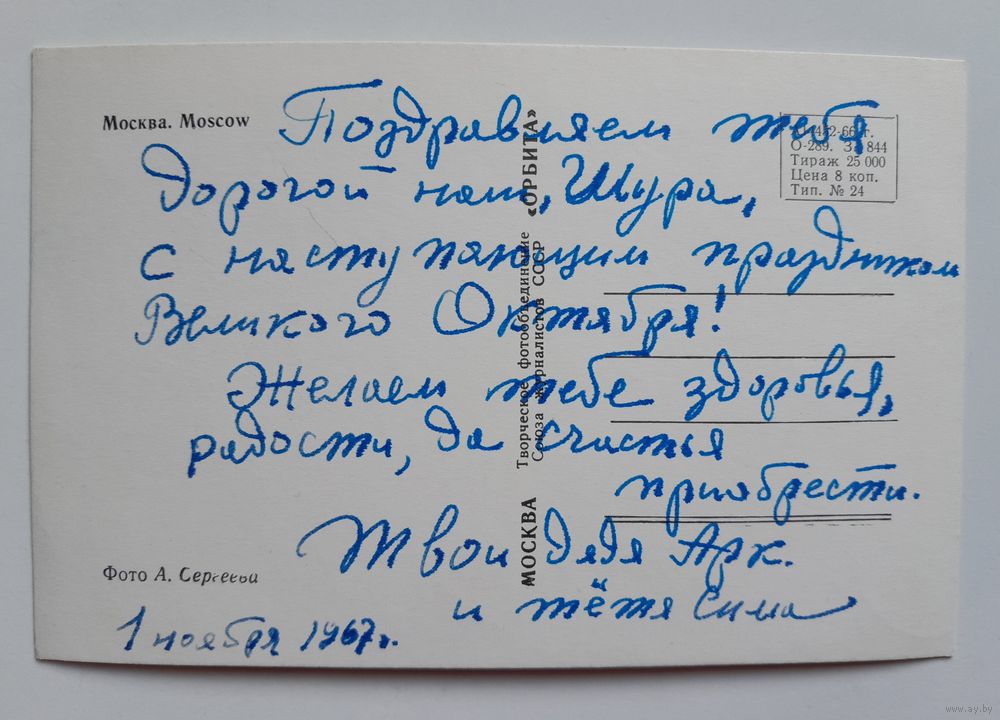 Москва. Moscow
Поздравляем тебя
дорогой наш, Шура,
с наступающим праздником
Великого Октября!
Желаем тебе здоровья,
радости, да счастья
приобрести.
Твои дядя Арк.
и тётя Сима
1 ноября 1967г.
Фото А. Сергеева
МОСКВА
Творческое фотообъединение
Союза журналистов СССР
«ОРБИТА»
О-289. З. 844
Тираж 25 000
Цена 8 коп.
Тип. № 24
www.ay.by